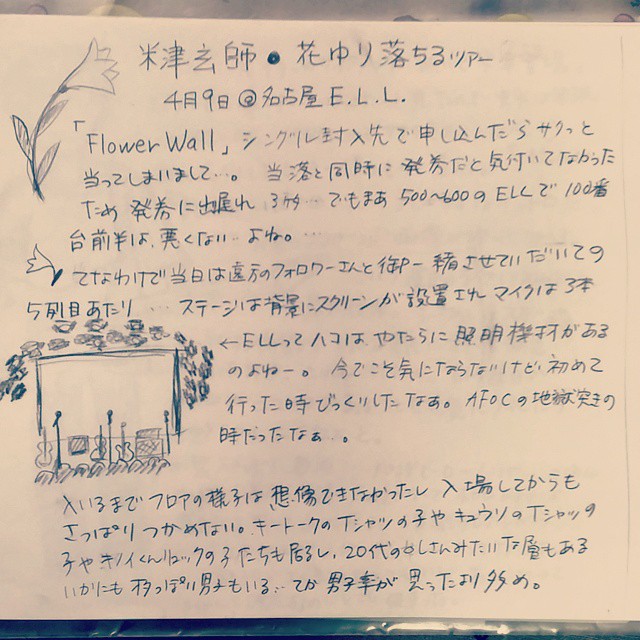 米津玄師・花ゆり落ちるツアー
4月9日@名古屋E.L.L.
「Flower Wall」シングル封入先で申し込んだらサクっと
当ってしまいまして…。当落と同時に発券だと気付いてなかった
ため発券に出遅れ3ケタ…でもまあ500〜600のELLで100番
台前半は、悪くない…よね。…
てなわけで当日は遠方のフォロワーさんと御一緒させていただいての
5列目あたり…ステージは背景にスクリーンが設置されマイクは3本
←ELLってハコはやたらに照明機材がある
のよねー。今でこそ気にならないけど初めて
行った時びっくりしたなぁ。AFOCの地獄突きの
時だったなぁ…。
入いるまでフロアの様子は想像できなかったし入場してからも
さっぱりつかめない。キートークのTシャツの子やキュウソのTシャツの
子やキノイくんリュックの子たちも居るし、20代のおじさんみたいな層もある
いかにもオタっぽい男子もいる…てか男子率が思ったより多め。